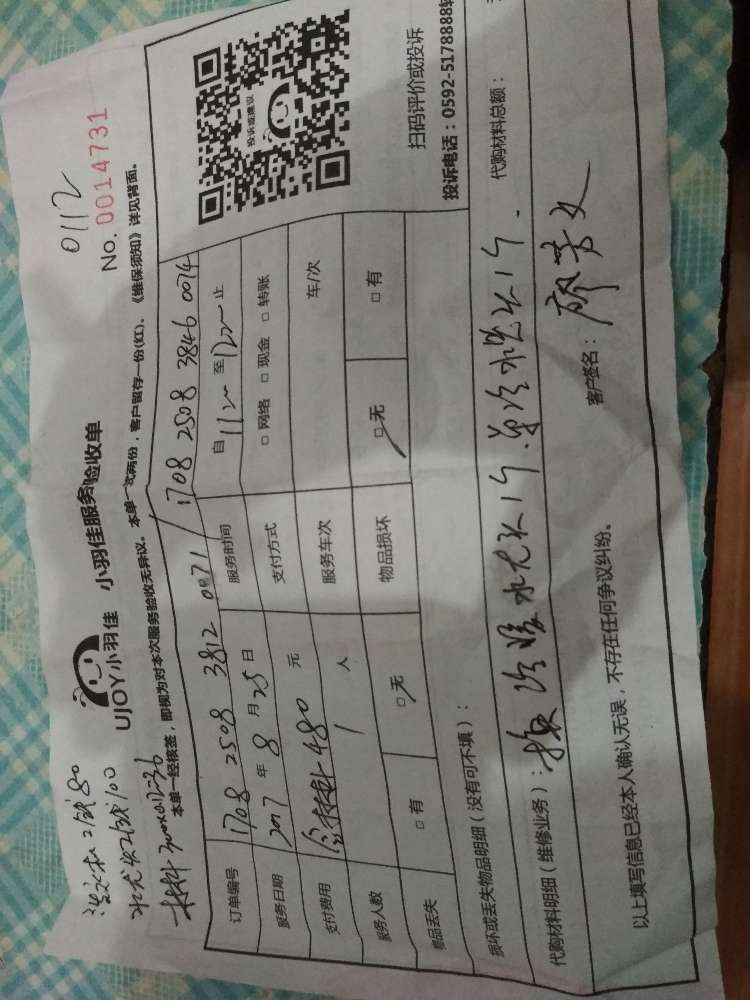 0112
No. 0014731
UJOY小羽佳 小羽佳服务验收单
工钱80
水龙头工钱100
材料
本单一经核签，即视为对本次服务验收无异议。本单一式两份，客户留存一份(红)。《维保须知》详见背面。
订单编号 1708 2508 3812 0071 / 1708 2508 3846 0074
服务日期 2017 年 8 月 25 日 服务时间 自 至 止
支付费用 含材料 480 元 支付方式 □ 网络 □ 现金 □ 转账
服务人数 1 人 服务车次 车/次
物品丢失 □ 有 □ 无 物品损坏 □ 无 □ 有
投诉或建议
扫码评价或投诉
投诉电话：0592-5178888转
损坏或丢失物品明细（没有可不填）：
代购材料明细（维修业务）：换冷暖水龙头1个 单冷水龙头1个. 代购材料总额：
客户签名：廖芳文
以上填写信息已经本人确认无误，不存在任何争议纠纷。